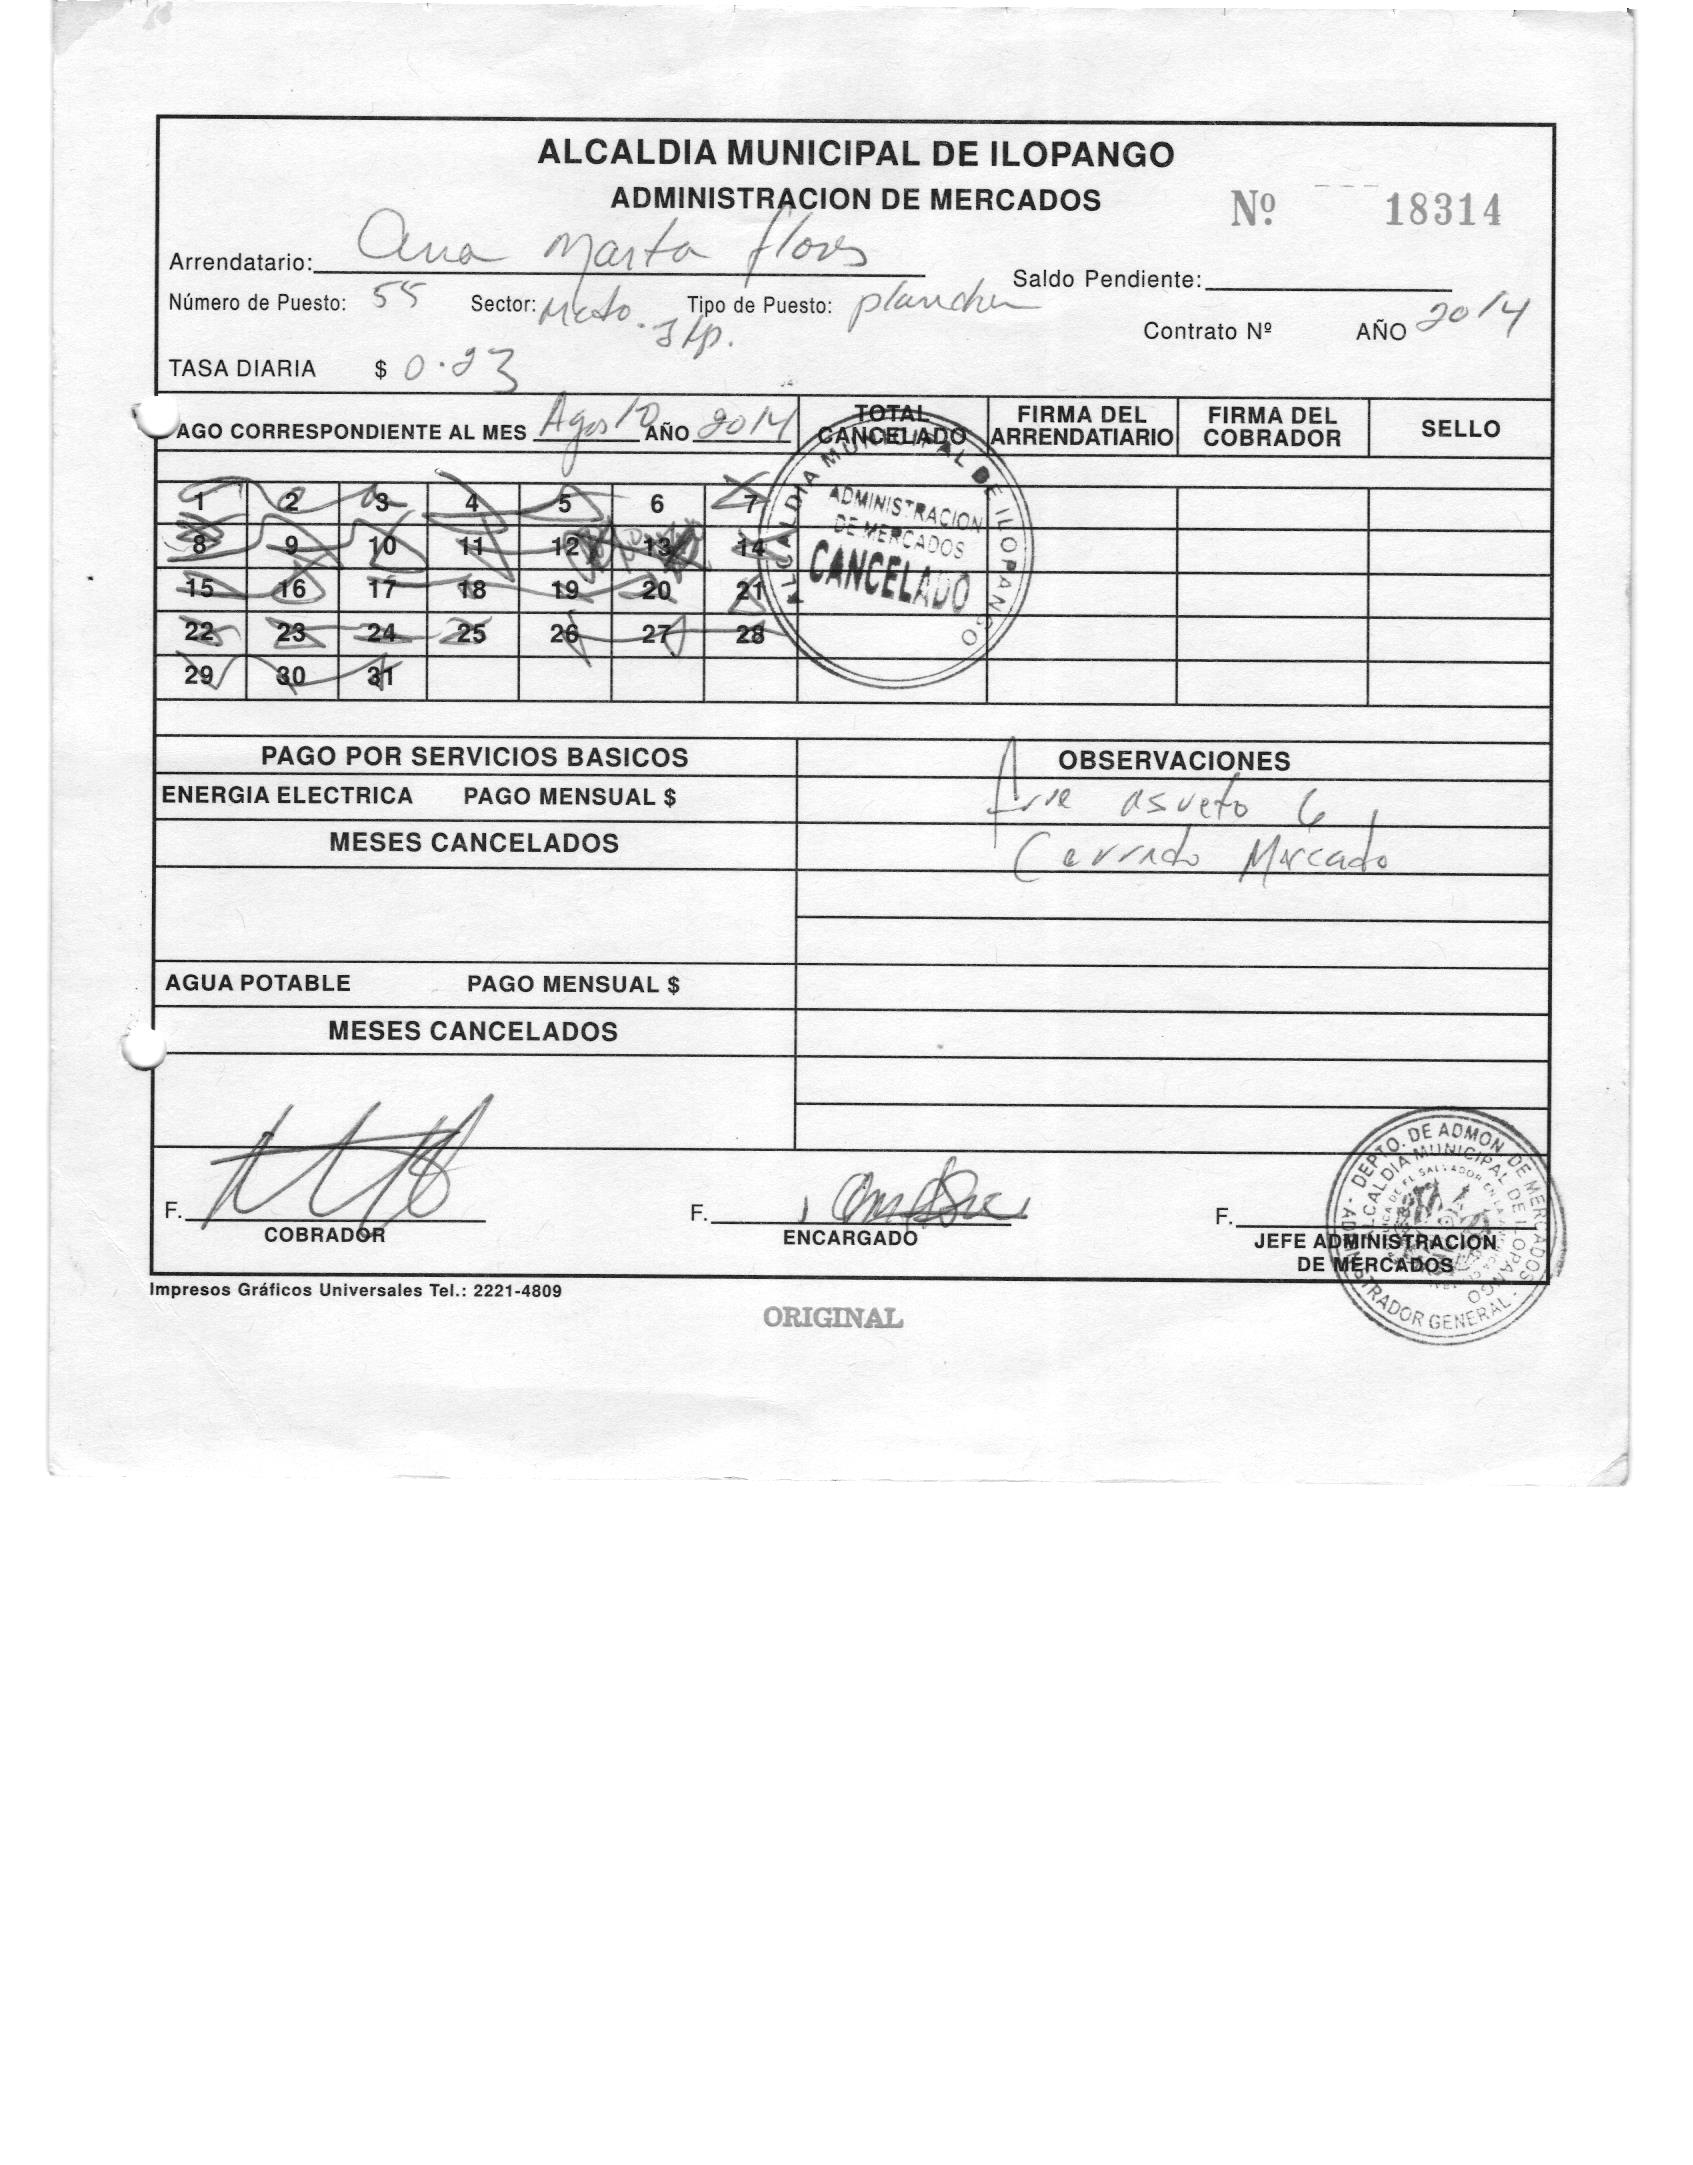 ALCALDIA MUNICIPAL DE ILOPANGO
ADMINISTRACION DE MERCADOS
Nº 18314
Arrendatario: Ana Marta flores
Saldo Pendiente:
Número de Puesto: 55 Sector: Mcdo. Ilp. Tipo de Puesto: plancha
Contrato Nº AÑO 2014
TASA DIARIA $ 0.23
AGO CORRESPONDIENTE AL MES Agosto AÑO 2014
TOTAL CANCELADO FIRMA DEL ARRENDATIARIO FIRMA DEL COBRADOR SELLO
1 2 3 4 5 6 7
8 9 10 11 12 13 14
15 16 17 18 19 20 21
22 23 24 25 26 27 28
29 30 31
ALCALDIA MUNICIPAL DE ILOPANGO
ADMINISTRACION
DE MERCADOS
CANCELADO
PAGO POR SERVICIOS BASICOS
OBSERVACIONES
ENERGIA ELECTRICA PAGO MENSUAL $
asueto 6
MESES CANCELADOS
Cerrado Mercado
AGUA POTABLE PAGO MENSUAL $
MESES CANCELADOS
F. COBRADOR
F. ENCARGADO
F. JEFE ADMINISTRACION
DE MERCADOS
DEPTO. DE ADMON. DE MERCADOS
ALCALDIA MUNICIPAL DE ILOPANGO
ADMINISTRADOR GENERAL
Impresos Gráficos Universales Tel.: 2221-4809
ORIGINAL